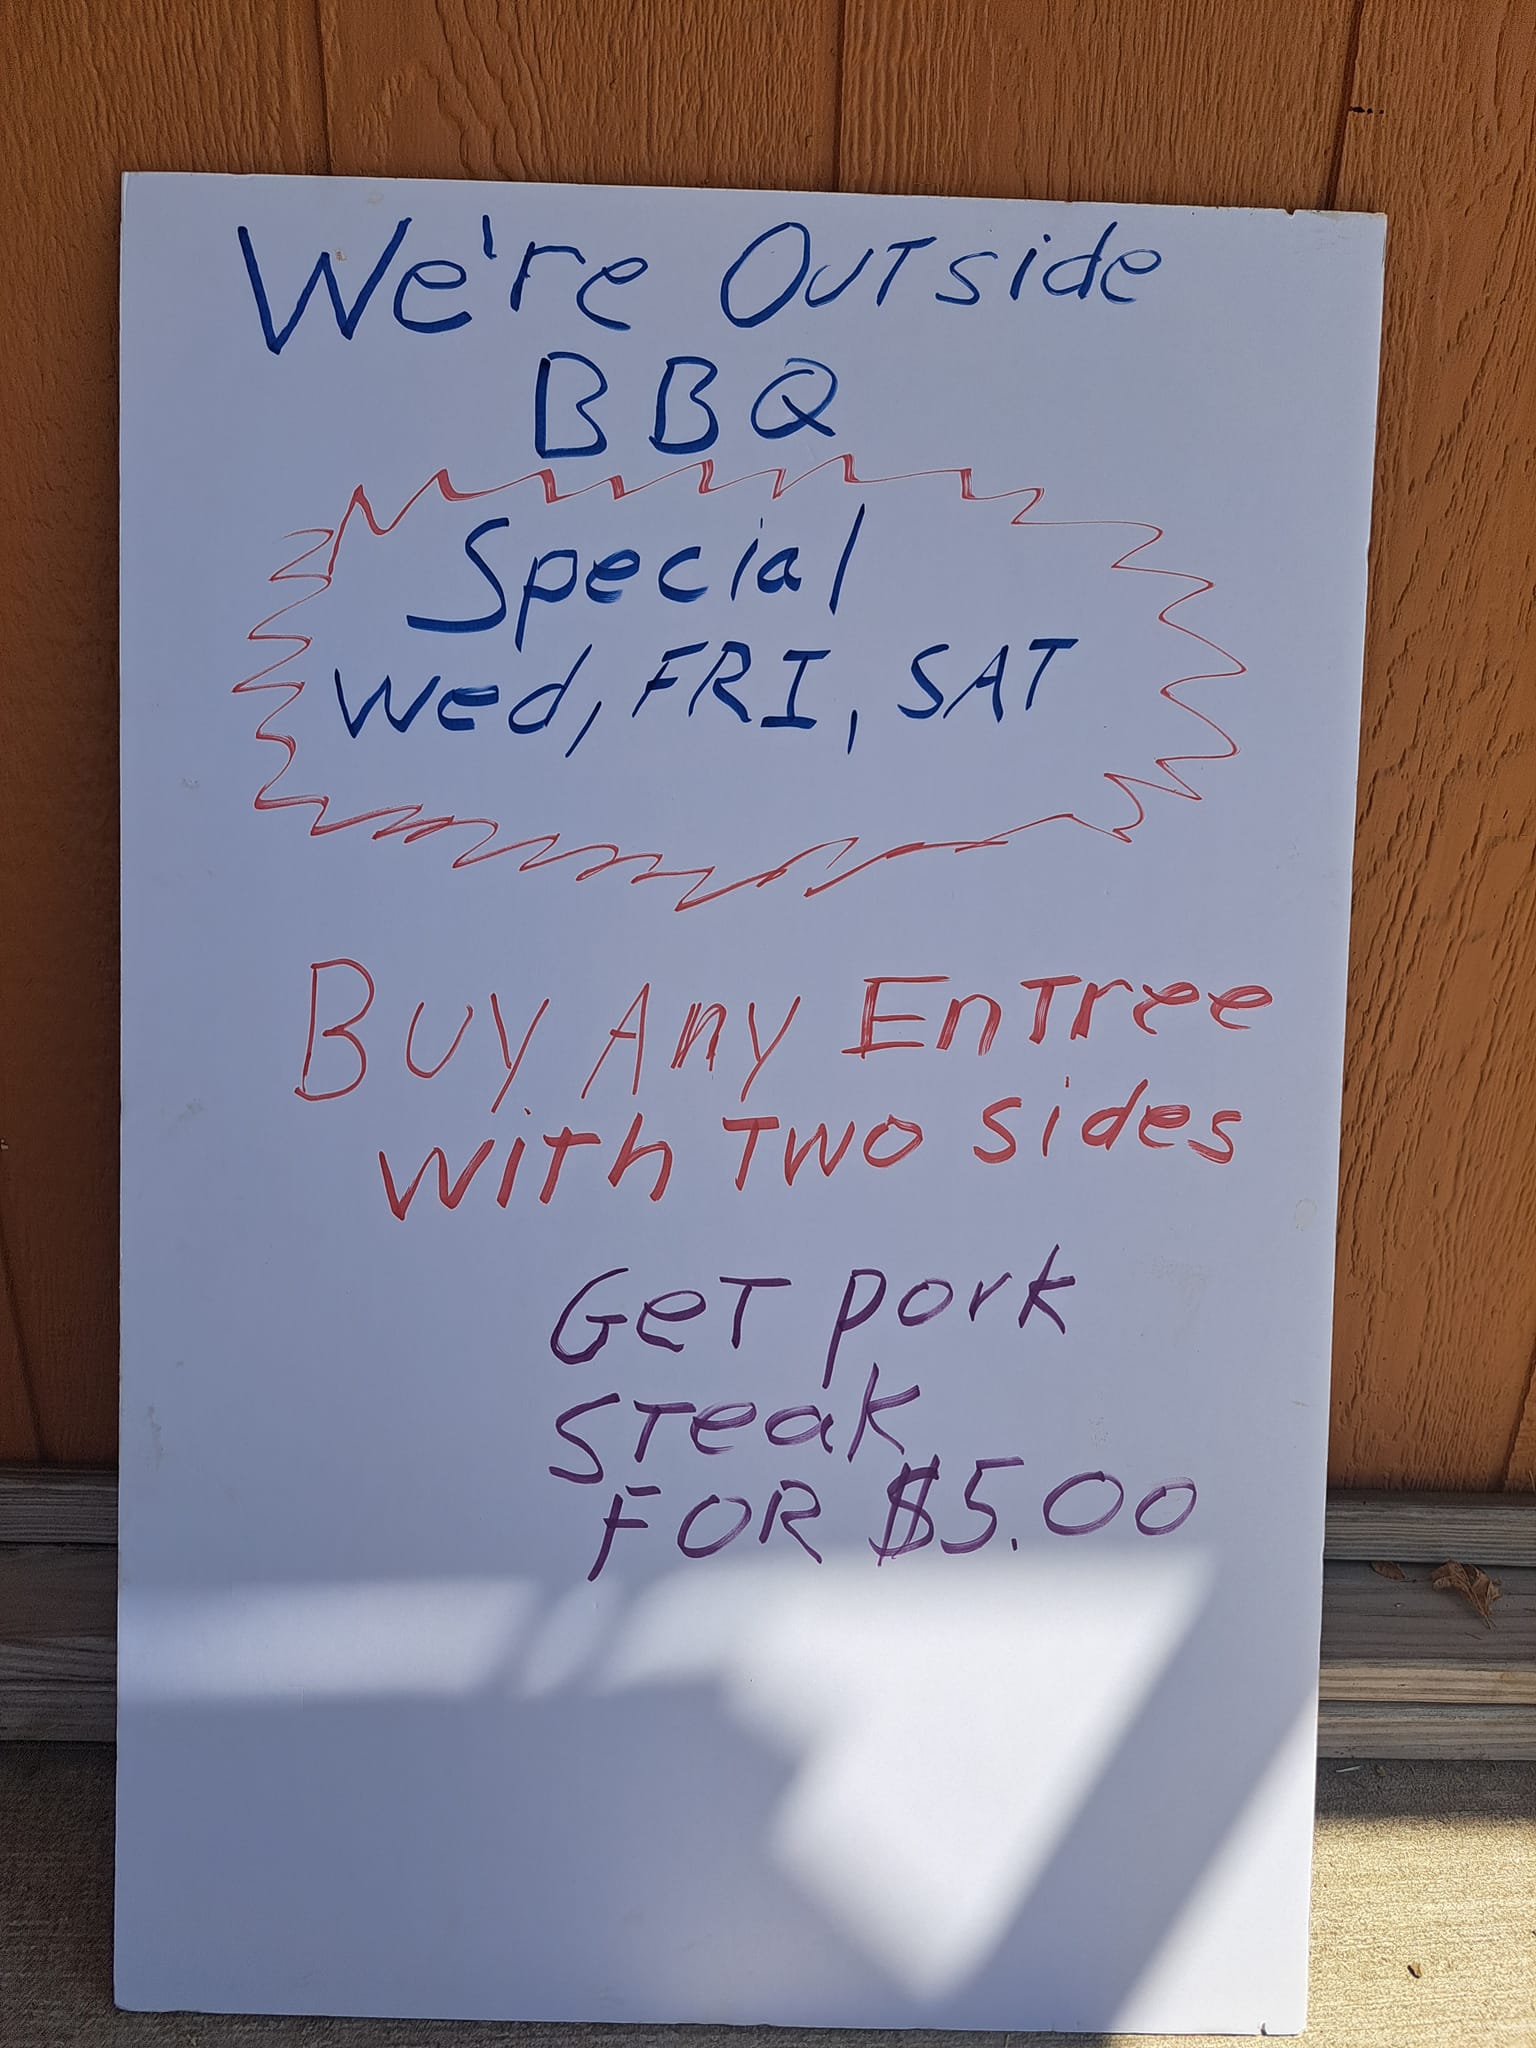 We're Outside
BBQ
Special
Wed, FRI, SAT
Buy Any Entree
with Two sides
Get pork
Steak
FOR $5.00